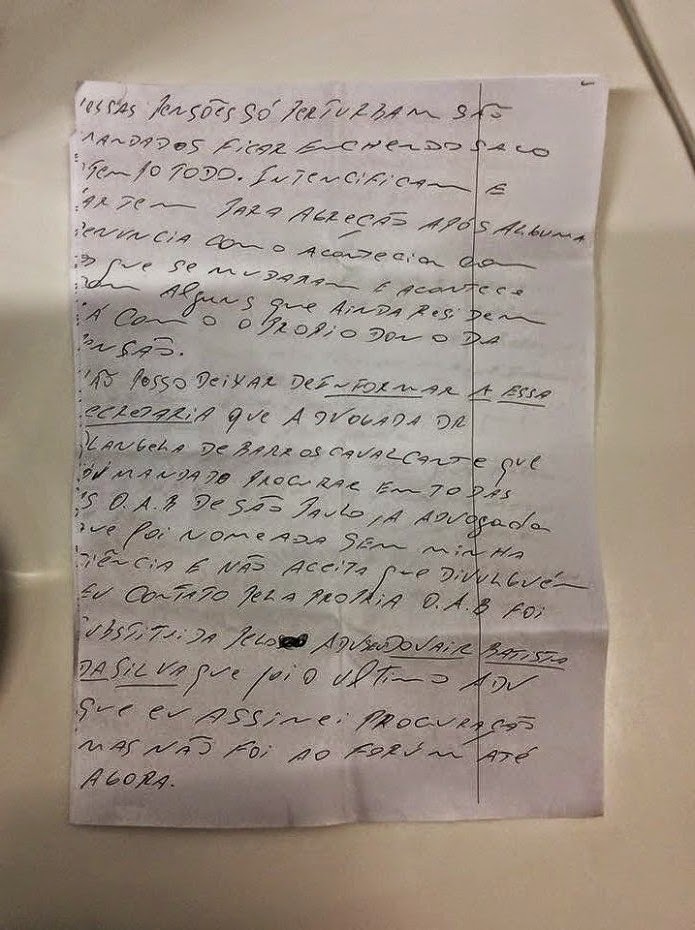 ESSAS PENSÕES SÓ PERTURBAM SÃO
MANDADOS FICAR ENCHENDO SACO
TEMPO TODO. INTENCIFICAM E
PARA AGREÇÃO APÓS ALGUMA
ENUNCIA COMO ACONTECIA COM
QUE SE MUDARAM E ACONTECE
OM ALGUNS QUE AINDA RESIDEM
Á COM O O PROPIO DONO DA
ENSÃO.
ÃO POSSO DEIXAR DE INFORMAR A ESSA
ECRETARIA QUE A DVOGADA DR
LANGELA DE BARROS CAVALCANTE QUE
MANDADO PROCURAR EM TODAS
S O.A.B DE SÃO PAULO, A ADVOGADA
UE FOI NOMEADA SEM MINHA
IÊNCIA E NÃO ACEITA QUE DIVULGUÉM
EU CONTATO PELA PROPRIA O.A.B FOI
UBSTITUIDA PELO ADV DOVAIR BATISTA
DA SILVA QUE FOI O ULTIMO ADV
QUE EU ASSINEI PROCURAÇÃO
MAS NÃO FOI AO FORÚM ATÉ
AGORA.